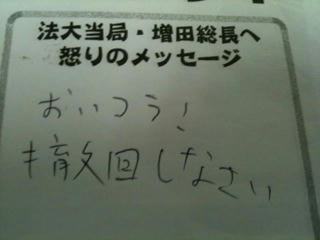 法大当局・増田総長へ
怒りのメッセージ
おいつう!
撤回しなさい